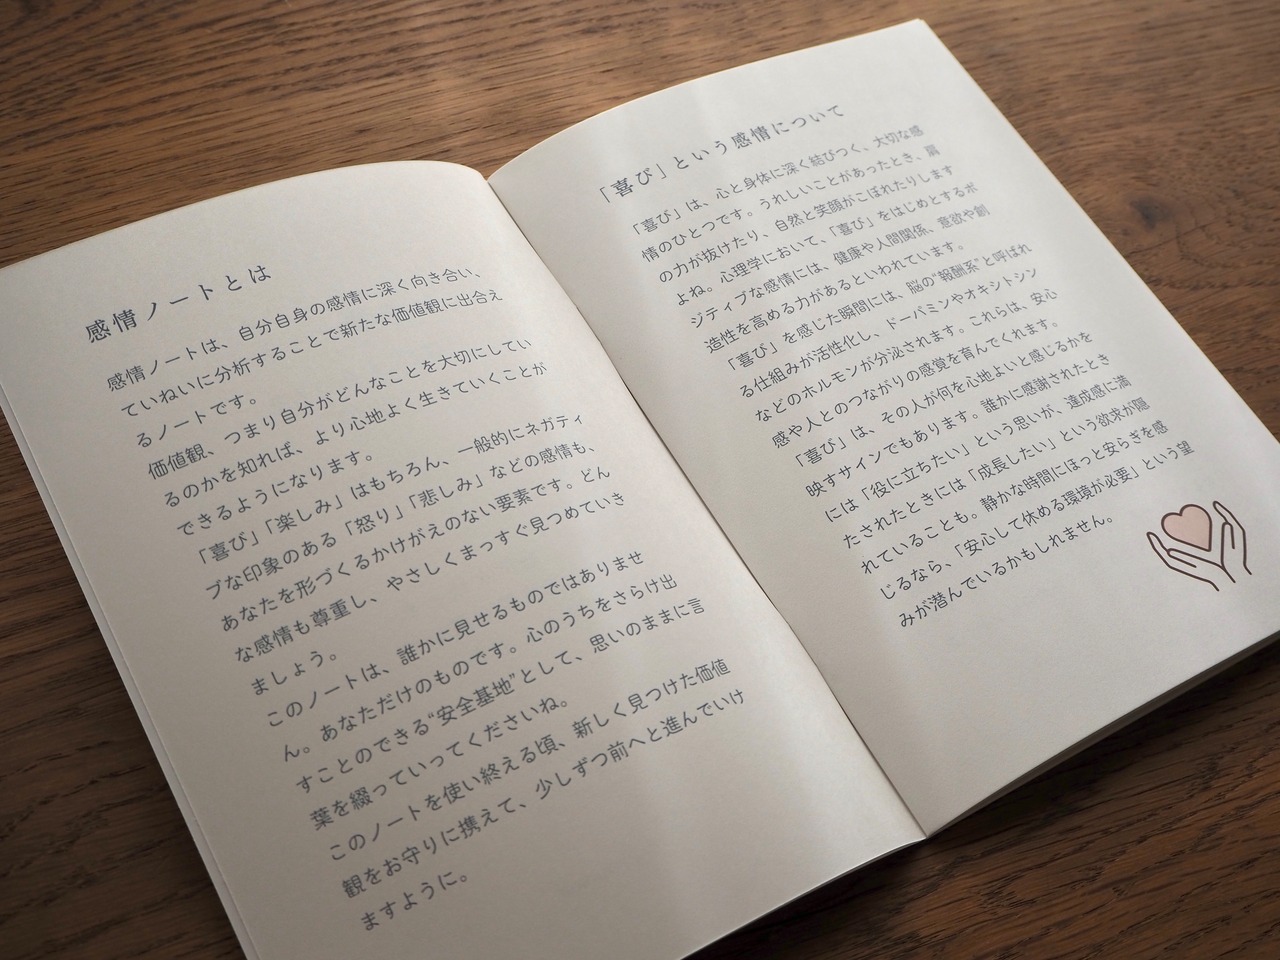 感情ノートとは
感情ノートは、自分自身の感情に深く向き合い、
ていねいに分析することで新たな価値観に出合え
るノートです。
価値観、つまり自分がどんなことを大切にしてい
るのかを知れば、より心地よく生きていくことが
できるようになります。
「喜び」「楽しみ」はもちろん、一般的にネガティ
ブな印象のある「怒り」「悲しみ」などの感情も、
あなたを形づくるかけがえのない要素です。どん
な感情も尊重し、やさしくまっすぐ見つめていき
ましょう。
このノートは、誰かに見せるものではありませ
ん。あなただけのものです。心のうちをさらけ出
すことのできる“安全基地”として、思いのままに言
葉を綴っていってくださいね。
このノートを使い終える頃、新しく見つけた価値
観をお守りに携えて、少しずつ前へと進んでいけ
ますように。
「喜び」という感情について
「喜び」は、心と身体に深く結びつく、大切な感
情のひとつです。うれしいことがあったとき、肩
の力が抜けたり、自然と笑顔がこぼれたりします
よね。心理学において、「喜び」をはじめとするポ
ジティブな感情には、健康や人間関係、意欲や創
造性を高める力があるといわれています。
「喜び」を感じた瞬間には、脳の“報酬系”と呼ばれ
る仕組みが活性化し、ドーパミンやオキシトシン
などのホルモンが分泌されます。これらは、安心
感や人とのつながりの感覚を育んでくれます。
「喜び」は、その人が何を心地よいと感じるかを
映すサインでもあります。誰かに感謝されたとき
には「役に立ちたい」という思いが、達成感に満
たされたときには「成長したい」という欲求が隠
れていることも。静かな時間にほっと安らぎを感
じるなら、「安心して休める環境が必要」という望
みが潜んでいるかもしれません。